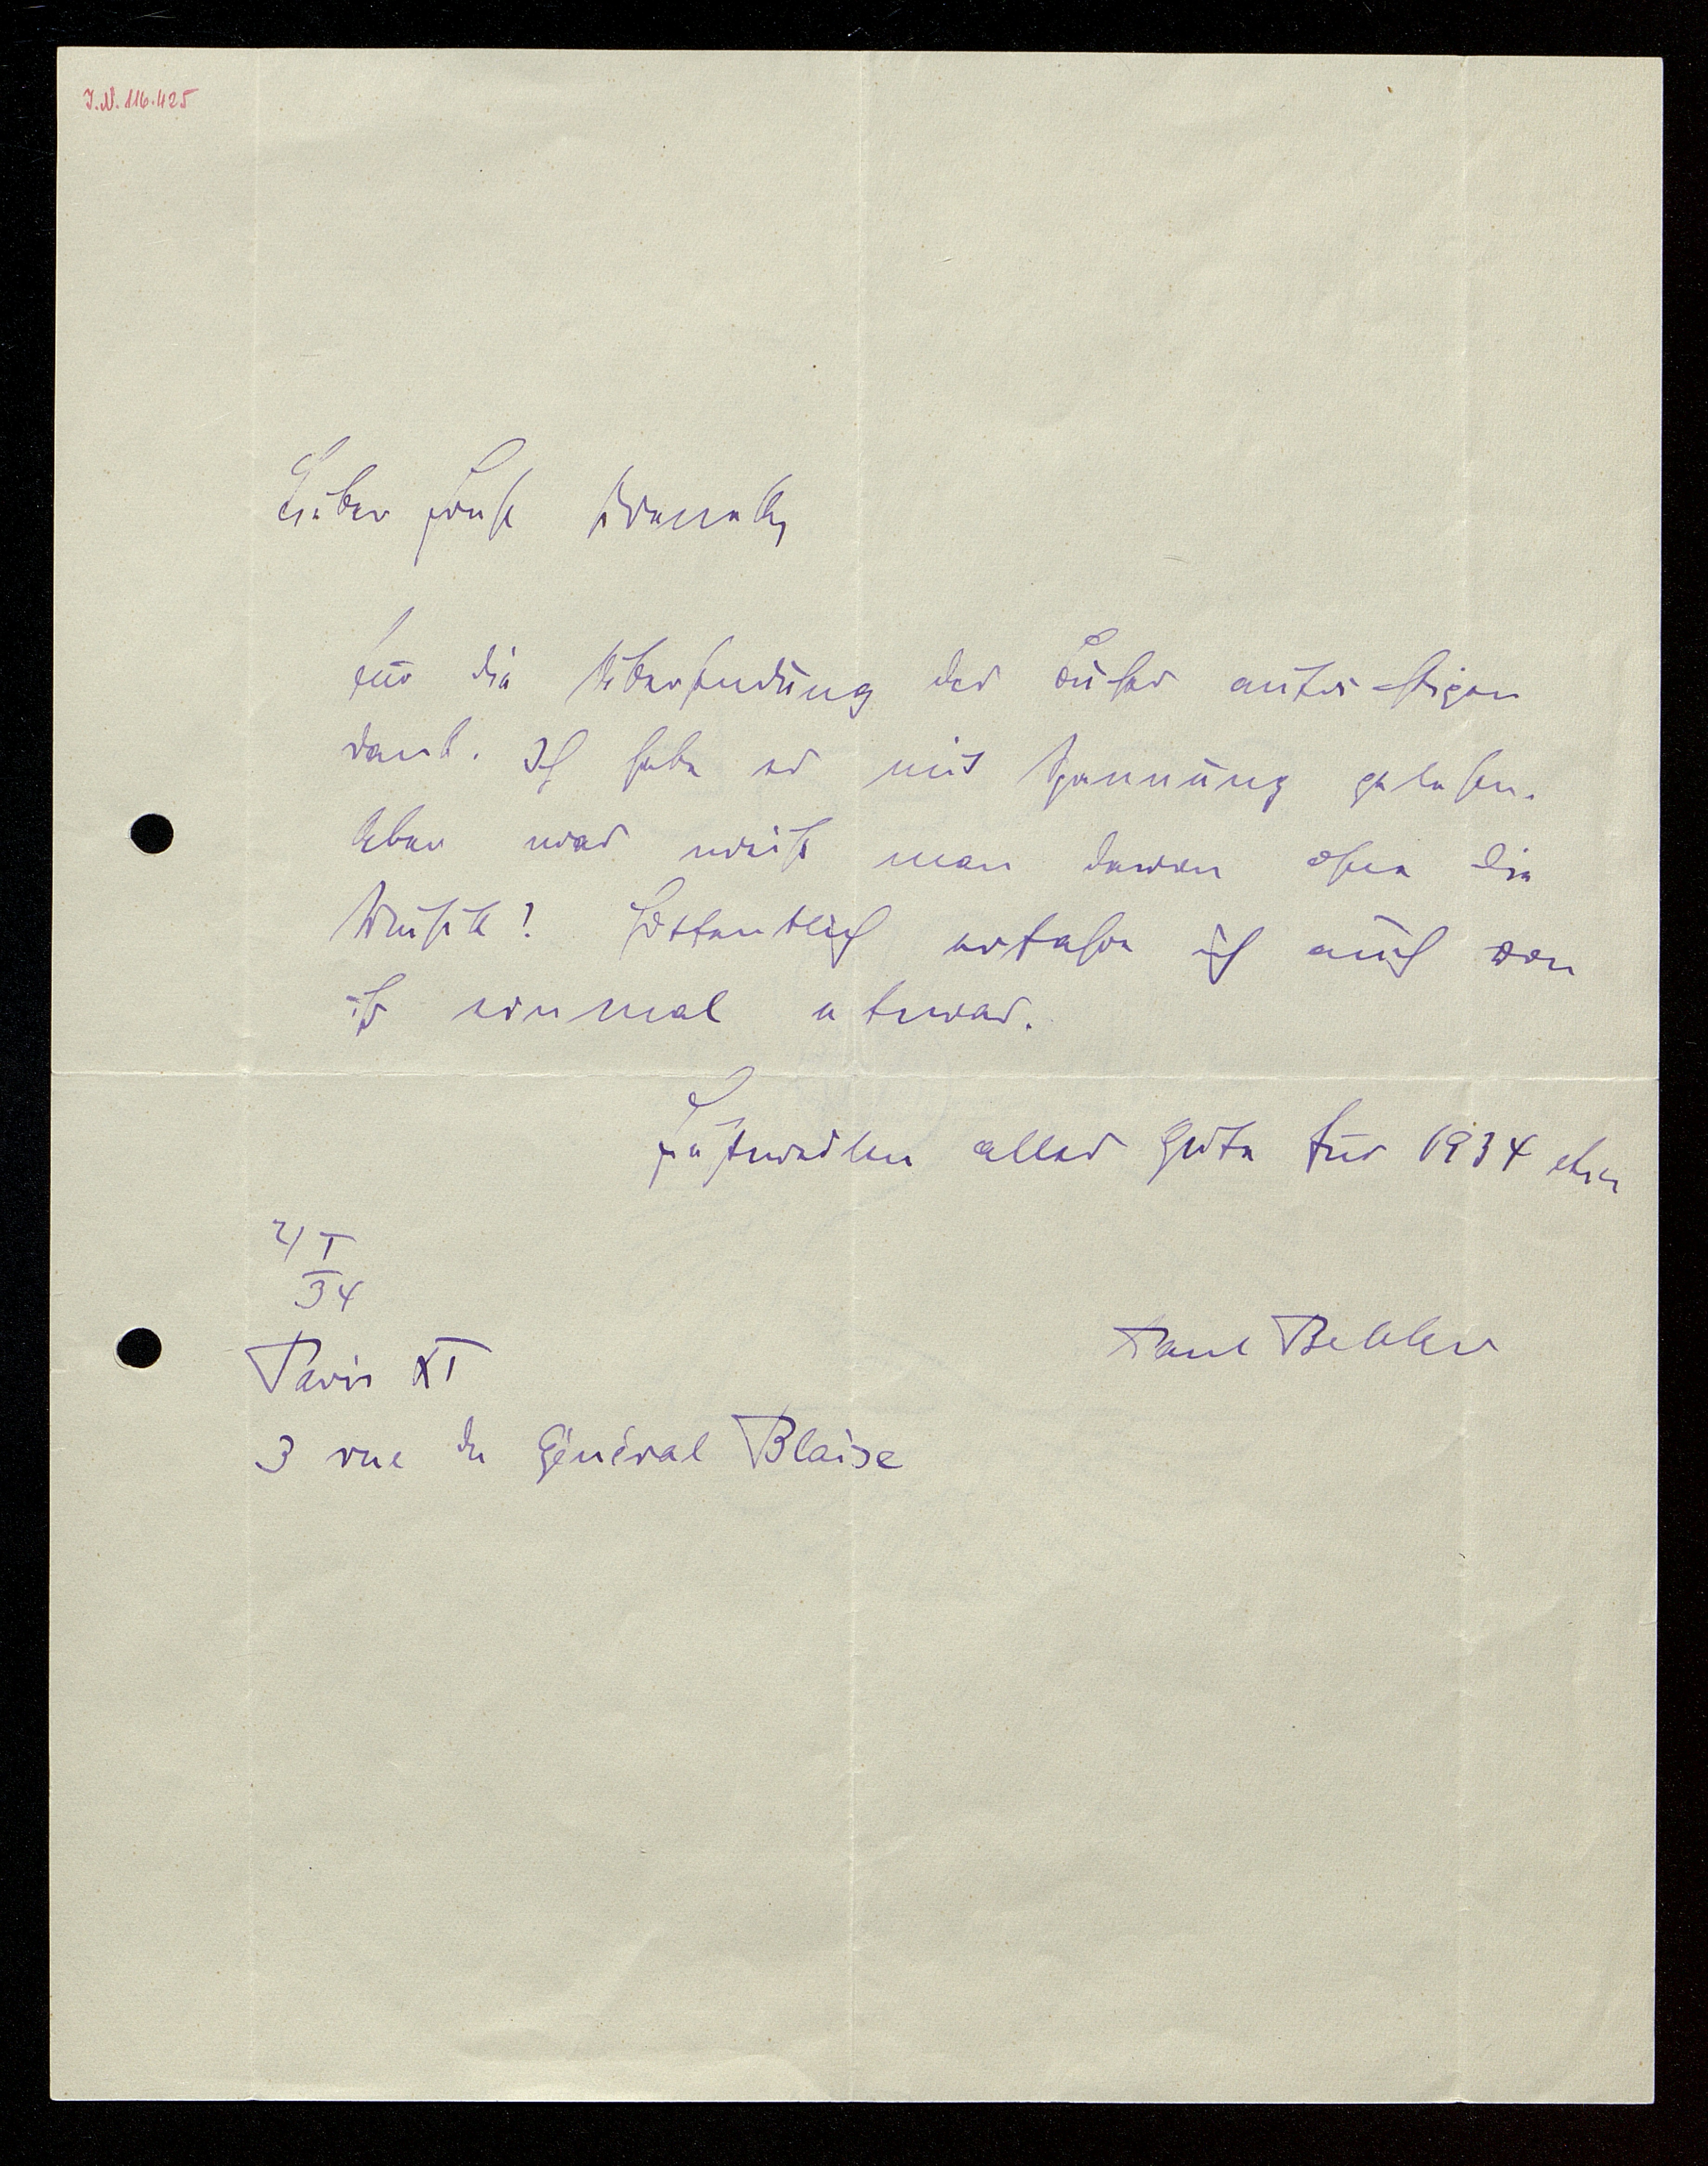 I.N. 116.425
Lieber Ernst Krenek,
für die Übersendung des Buches aufrichtigen
Dank. Ich habe es mit Spannung gelesen.
Aber was weiß man davon ohne die
Musik! Hoffentlich erfahre ich auch von
ihr einmal etwas.
alles Gute für 1934
I
34
Paris XI
Paul Bekker
3 rue du Général Blaise